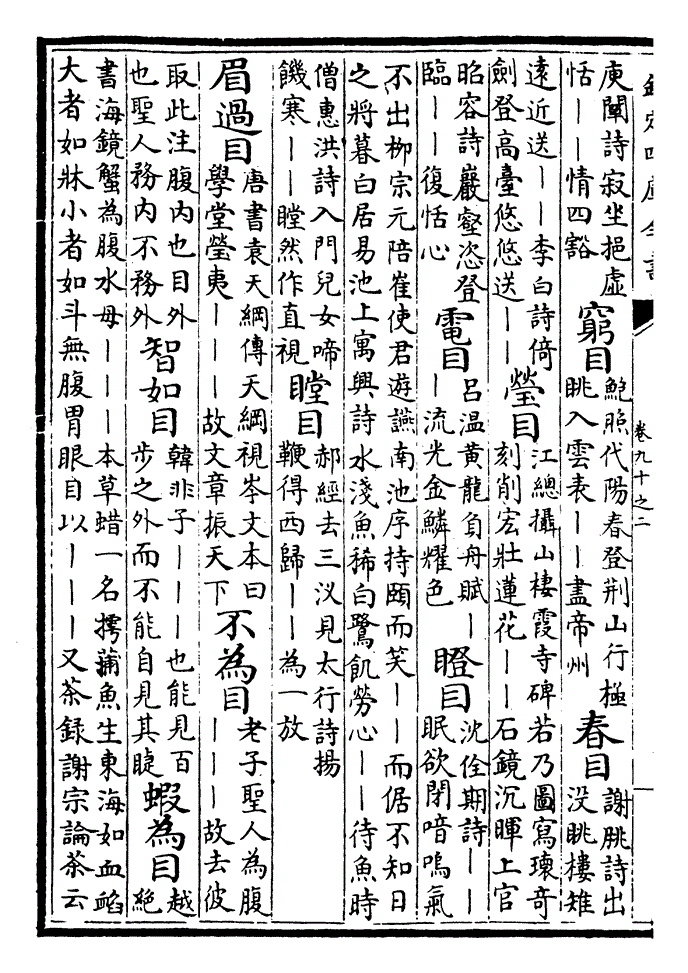 欽定四庫全書
卷九十之二
庾闡詩寂坐挹虛
恬——情四豁
窮目
鮑照代陽春登荆山行極
眺入雲表——盡帝州
春目
謝朓詩出
没眺樓雉
遠近送——李白詩倚
劍登高臺悠悠送——
瑩目
江總攝山棲霞寺碑若乃圖寫瓌奇
刻削宏壯蓮花——石鏡沉暉上官
昭容詩巖壑恣登
臨——復恬心
電目
呂温黄龍負舟賦—
—流光金鱗耀色
瞪目
沈佺期詩——
眠欲閉喑嗚氣
不出柳宗元陪崔使君遊讌南池序持頤而笑——而倨不知日
之將暮白居易池上寓興詩水淺魚稀白鷺飢勞心——待魚時
僧惠洪詩入門兒女啼
饑寒——瞠然作直視
瞠目
郝經去三汊見太行詩揚
鞭得西歸——為一放
眉過目
唐書袁天綱傳天綱視岑文本曰
學堂瑩夷———故文章振天下
不為目
老子聖人為腹
———故去彼
取此注腹内也目外
也聖人務内不務外
智如目
韓非子———也能見百
步之外而不能自見其睫
蝦為目
越
絶
書海鏡蟹為腹水母———本草蜡一名摴蒱魚生東海如血䘓
大者如牀小者如斗無腹胃眼目以———又茶録謝宗論茶云